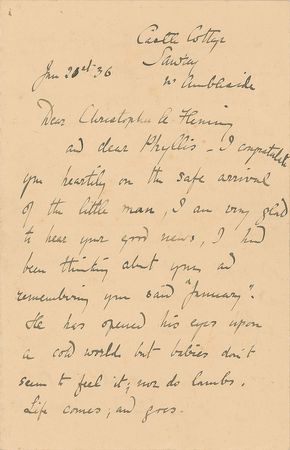 Castle Cottage
Sawrey
nr Ambleside
Jan 20st 36
Dear Christopher & Fleming
and dear Phyllis - I congratulate
you heartily on the safe arrival
of the little man, I am very glad
to hear your good news, I had
been thinking about you and
remembering you said "January".
He has opened his eyes upon
a cold world but babies don't
seem to feel it; nor do lambs.
Life comes; and goes.